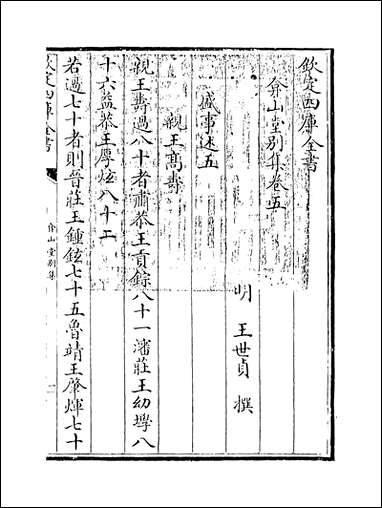 欽定四庫全書
弇山堂别集卷五
明 王世貞 撰
盛事述五
親王髙夀
親王夀過八十者肅恭王貢錝八十一瀋莊王幼㙾八
十六益恭王厚炫八十二
若過七十者則晉莊王鍾鉉七十五魯靖王肇煇七十
欽定四庫全書
弇山堂别集
一